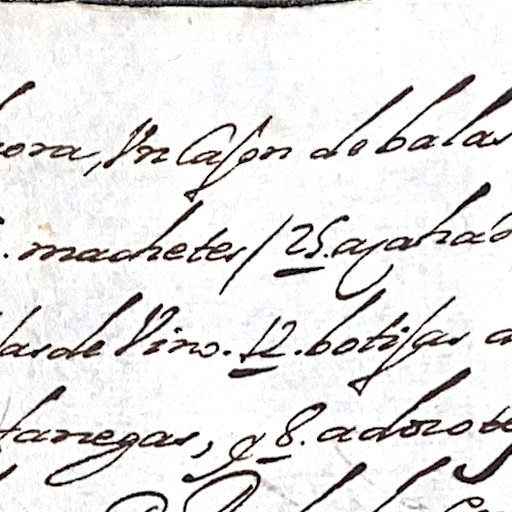 ora, Vn Cajon de balas
machetes / 25. azaha
as de Vino. 12. botijas
fanegas, y 8.